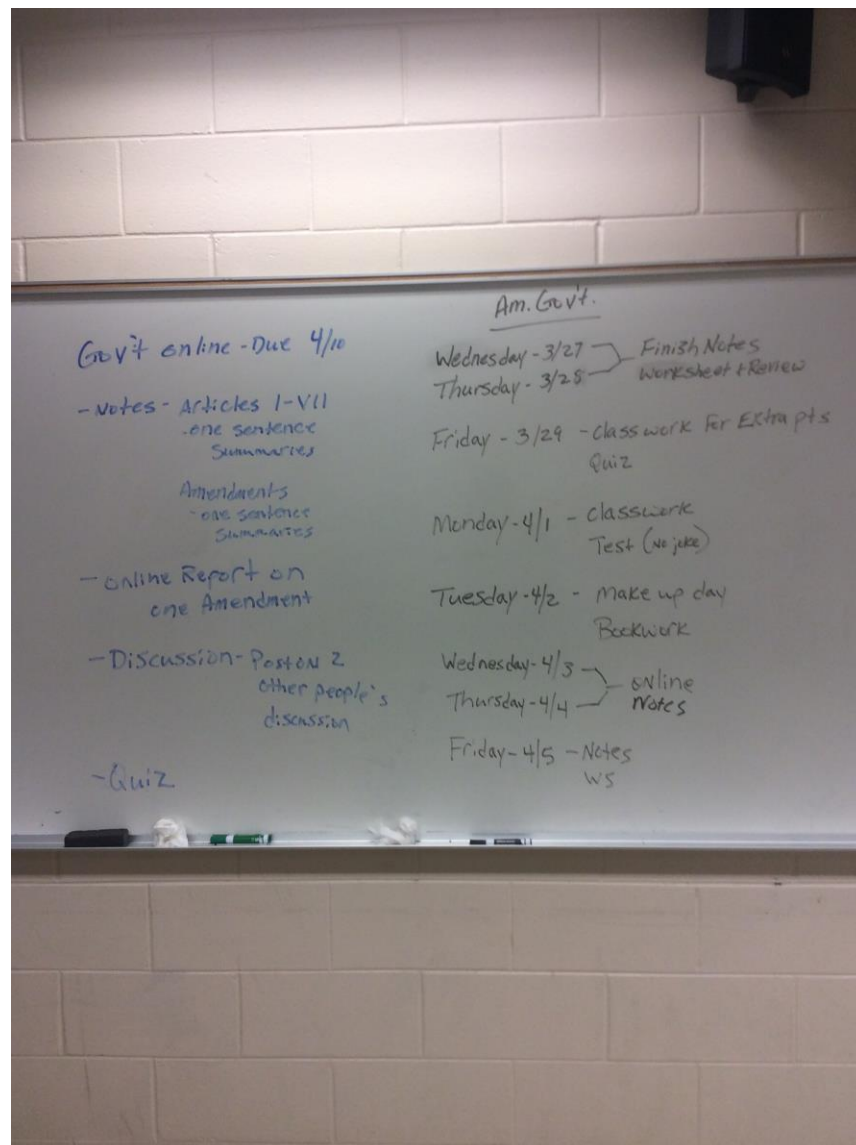 Gov't online - Due 4/10
- Notes - Articles I-VII
- one sentence
Summaries
Amendments
- one sentence
Summaries
- Online Report on
one Amendment
- Discussion - Post on 2
other people's
discussion
- Quiz
Am. Gov't.
Wednesday - 3/27
Thursday - 3/28
Finish Notes
Worksheet + Review
Friday - 3/29 - Classwork For Extra pts
Quiz
Monday - 4/1 - Classwork
Test (No joke)
Tuesday - 4/2 - Make up day
Bookwork
Wednesday - 4/3
Thursday - 4/4
online
Notes
Friday - 4/5 - Notes
WS